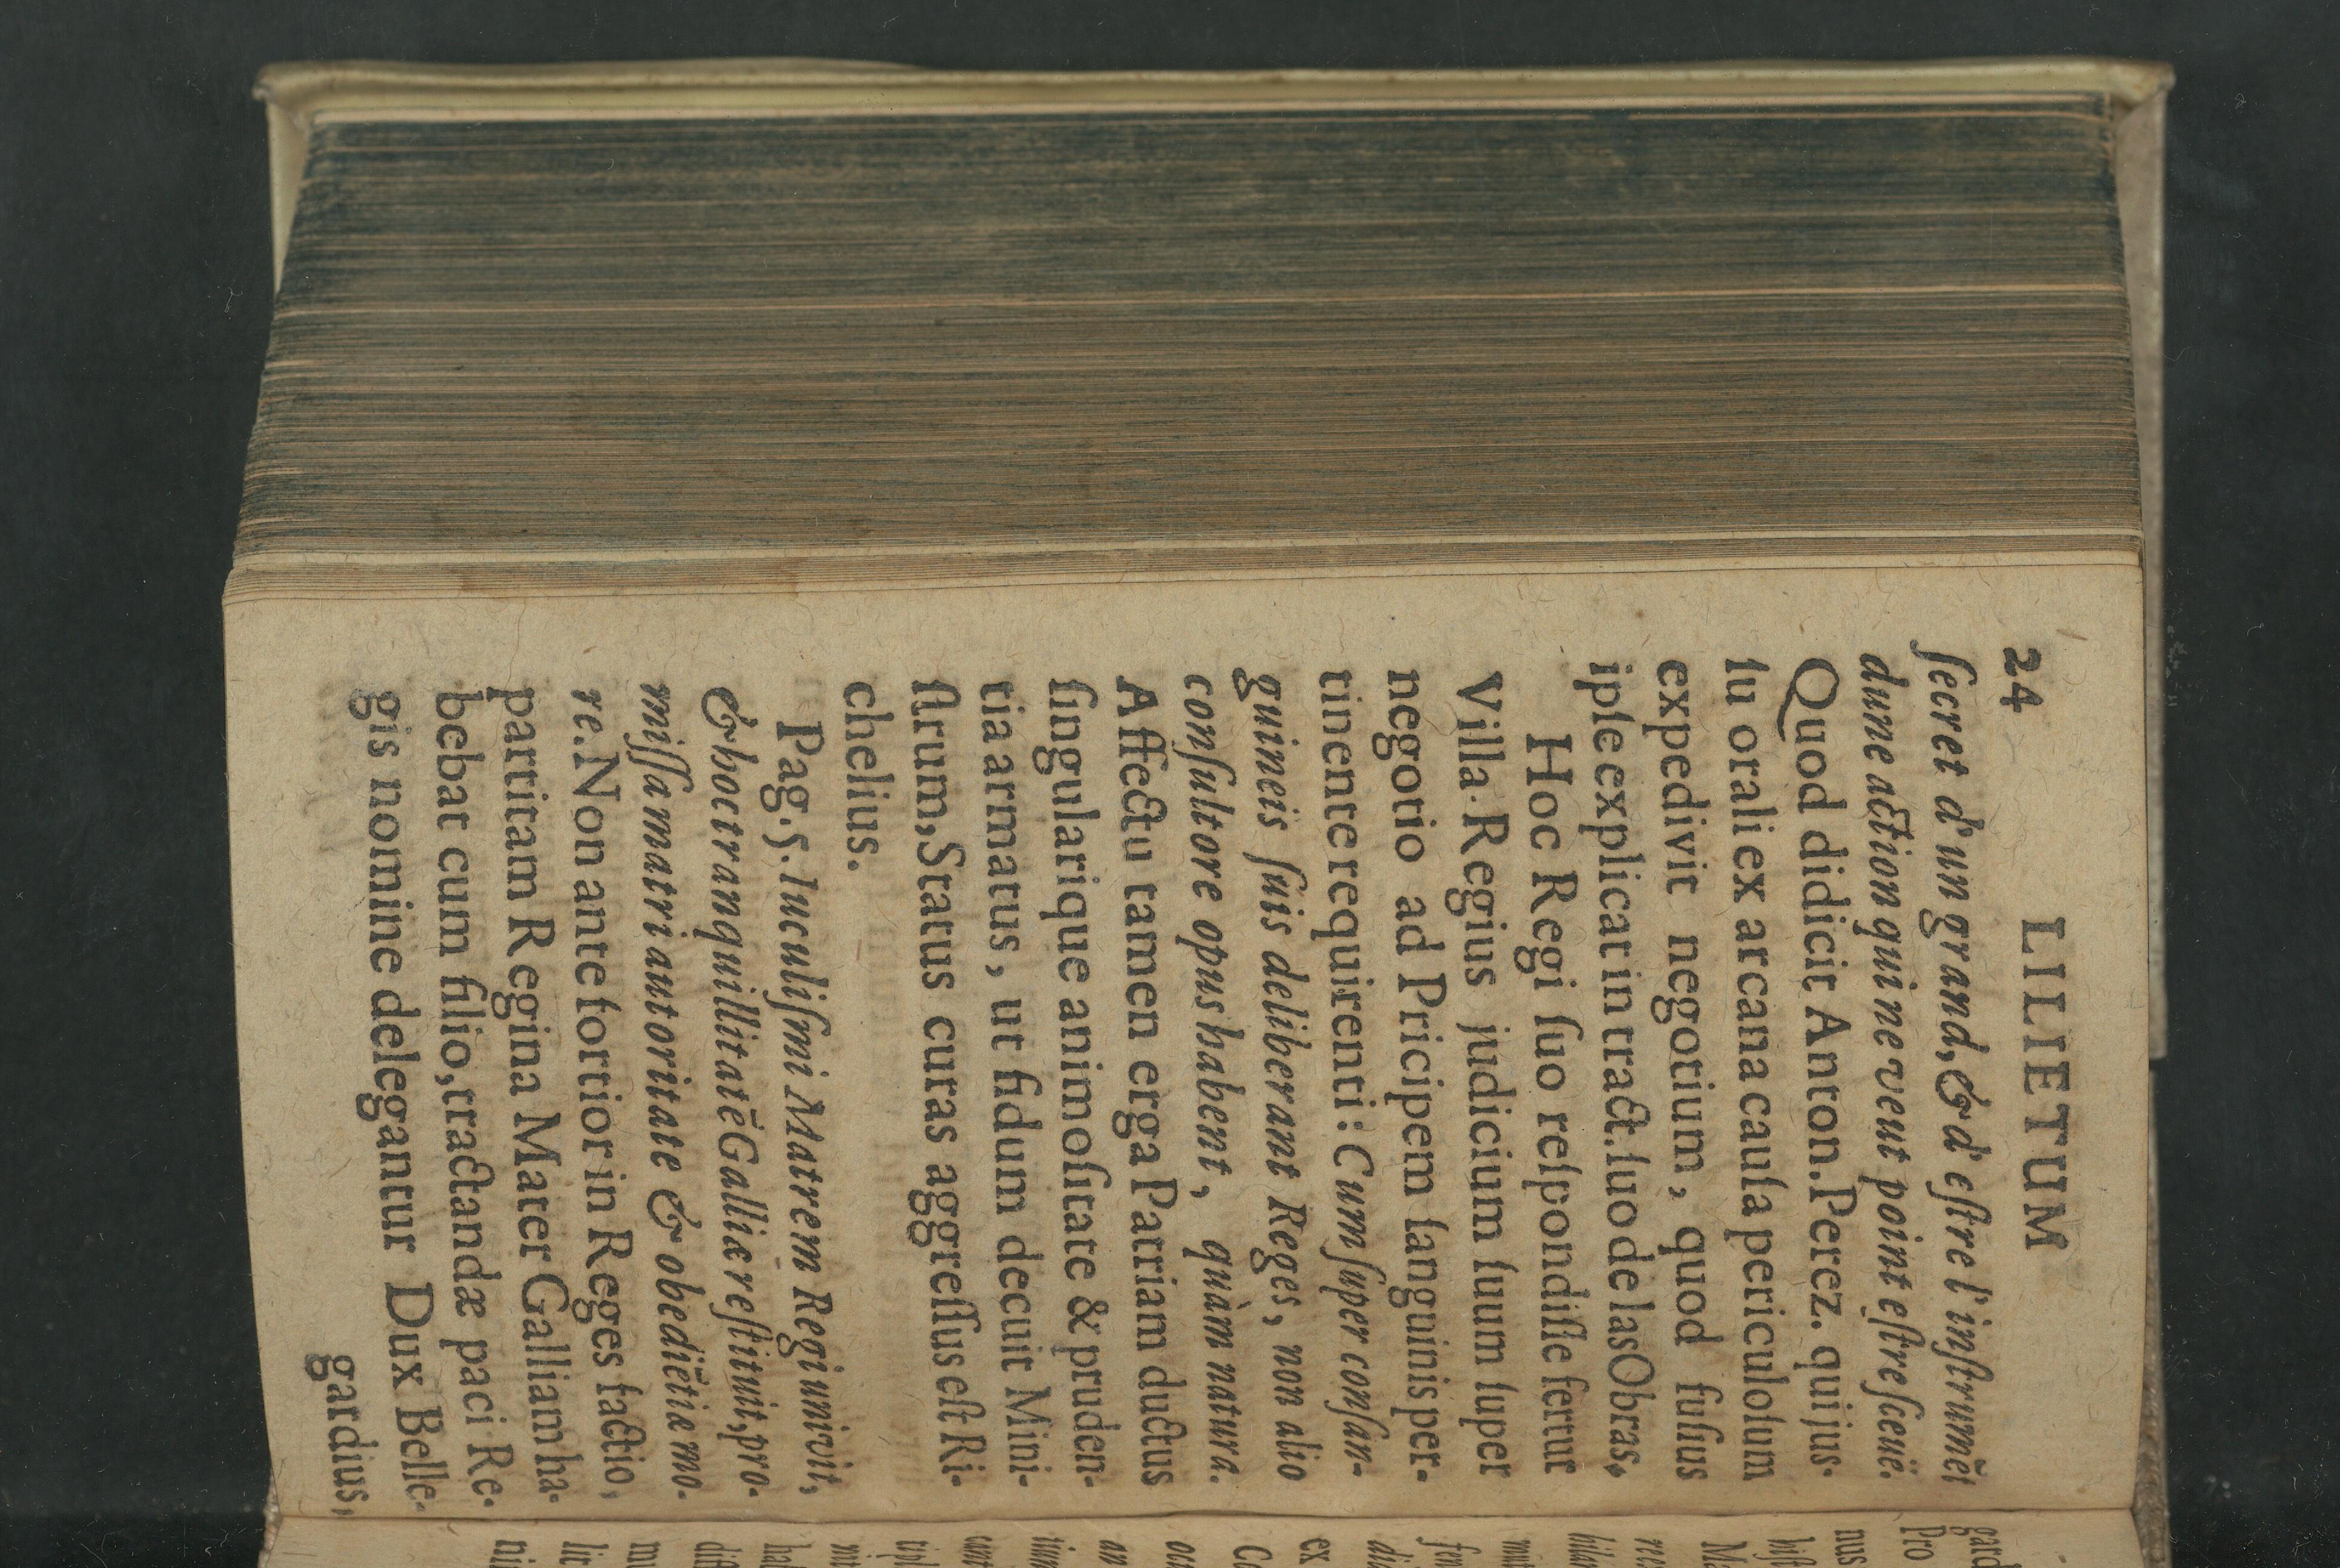 24 LILIETUM
ſecret d'un grand, & d'eſtre l'inſtrumēt
dune action qui ne veut point eſtre ſceuë.
Quod didicit Anton. Perez. qui jus-
ſu orali ex arcana cauſa periculoſum
expedivit negotium, quod fuſius
ipſe explicat in tract. ſuo de las Obras.
Hoc Regi ſuo reſpondiſſe fertur
Villa-Regius judicium ſuum ſuper
negotio ad Pricipem ſanguinis per-
tinente requirenti: Cum ſuper conſan-
guineis ſuis deliberant Reges, non alio
conſultore opus habent, quàm natura.
Affectu tamen erga Patriam ductus
ſingularique animoſitate & pruden-
tia armatus, ut fidum decuit Mini-
ſtrum, Status curas aggreſſus eſt Ri-
chelius.
Pag. 5. luculiſmi Matrem Regi univit,
& hoc tranquillitatē Galliæ reſtituit, pro-
miſſa matri autoritate & obediētiæ mo-
re. Non ante fortior in Reges factio,
partitam Regina Mater Galliam ha-
bebat cum filio, tractandæ paci Re-
gis nomine delegantur Dux Belle-
gardius,